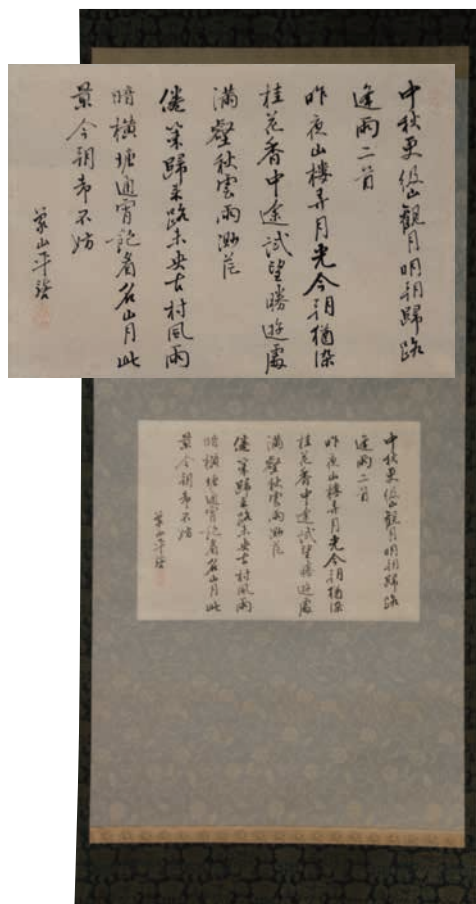 中秋更級山觀月明朝歸路
逢雨二首
昨夜山樓弄月光今朝猶染
桂花香中途試望勝遊處
滿壑秋雲雨渺茫
倦策歸来路未央古村風雨
暗橫塘通宵飽看名山月此
景今朝亦不妨
蒙山平
中秋更級山觀月明朝歸路
逢雨二首
昨夜山樓弄月光今朝猶染
桂花香中途試望勝遊處
滿壑秋雲雨渺茫
倦策歸来路未央古村風雨
暗橫塘通宵飽看名山月此
景今朝亦不妨
蒙山平